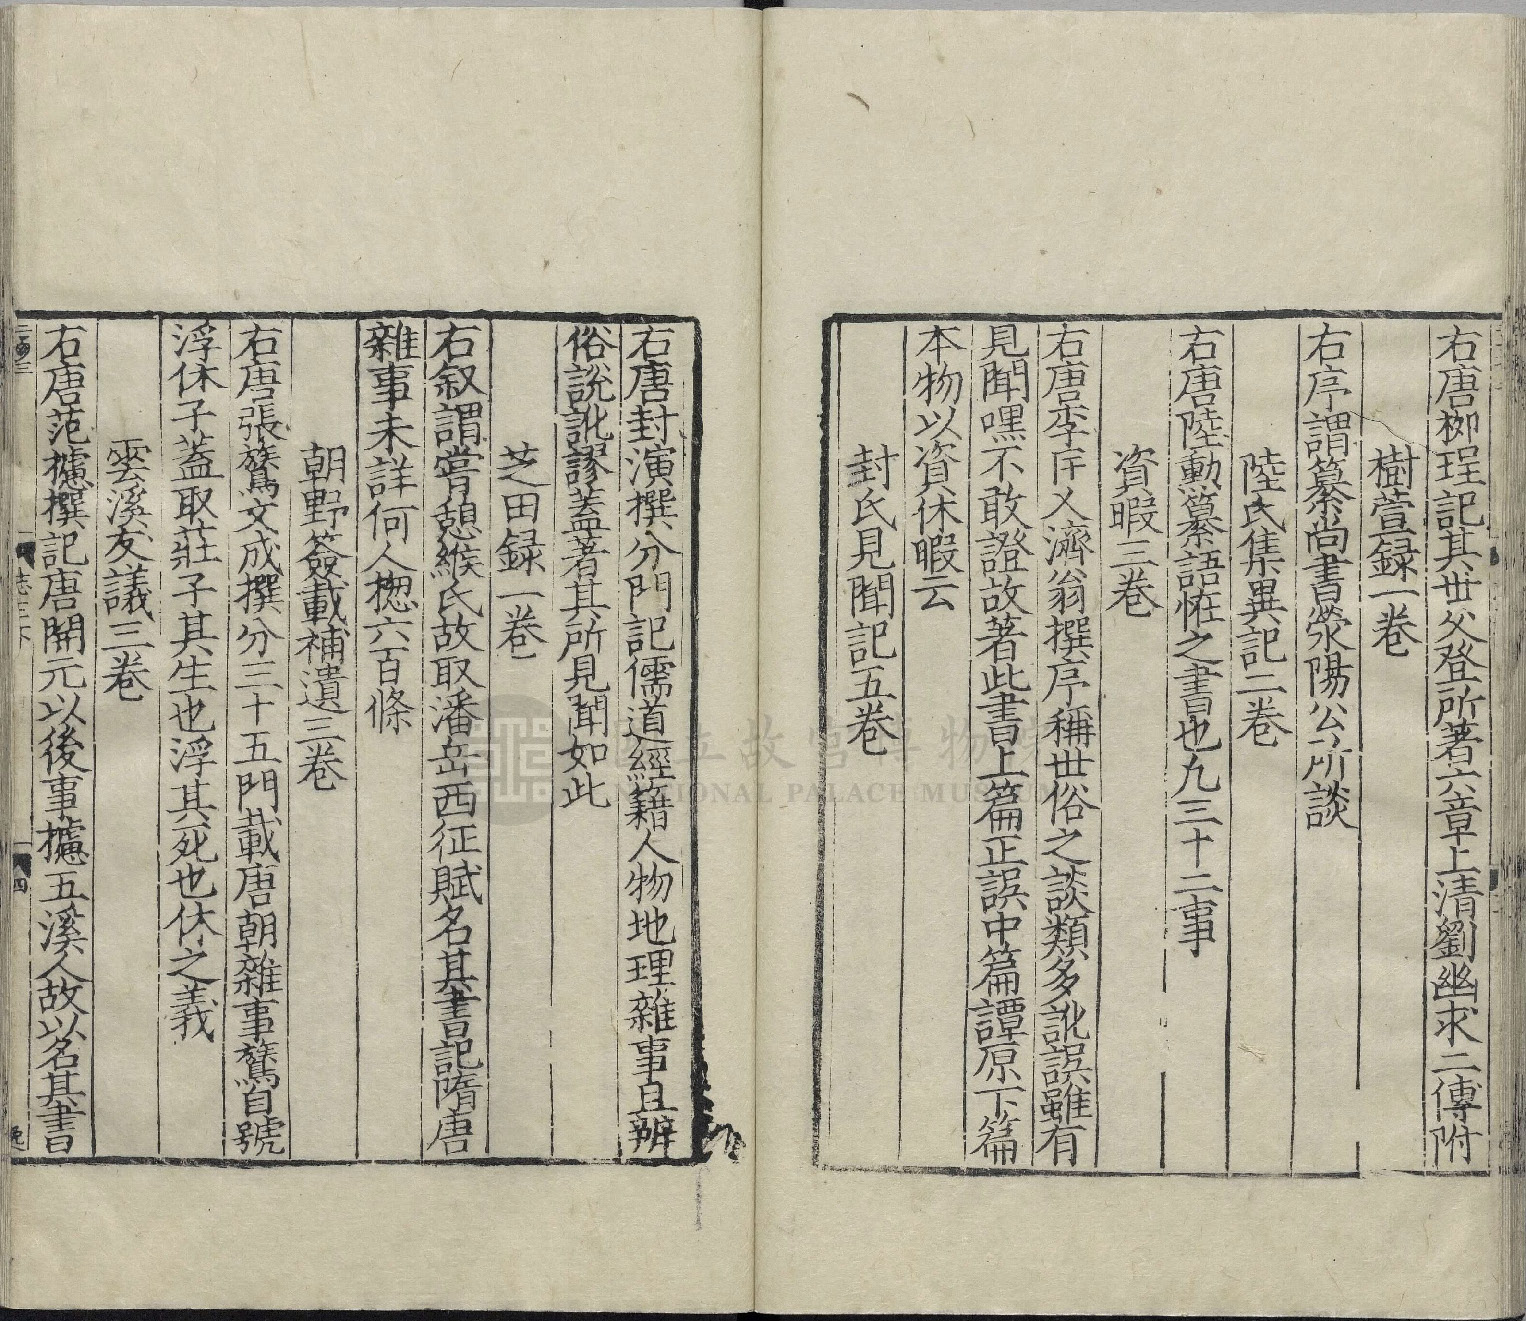 右唐栁珵記其世父登所著六章上清劉幽求二傳附
樹萱録一卷
右序謂纂尚書滎陽公所談
陸氏集異記二卷
右唐陸勳纂語怪之書也凡三十二事
資暇三卷
右唐李匡乂濟翁撰序稱世俗之談類多訛誤雖有
見聞嘿不敢證故著此書上篇正誤中篇譚原下篇
本物以資休暇云
封氏見聞記五卷
右唐封演撰分門記儒道經籍人物地理雜事且辨
俗說訛謬蓋著其所見聞如此
芝田録一卷
右叙謂嘗憩緱氏故取潘岳西征賦名其書記隋唐
雜事未詳何人揔六百條
朝野僉載補遺三卷
右唐張鷟文成撰分三十五門載唐朝雜事鷟自號
浮休子蓋取莊子其生也浮其死也休之義
雲溪友議三卷
右唐范攄撰記唐開元以後事攄五溪人故以名其書
志三下
四
國立故宮博物院
NATIONAL PALACE MUSEUM